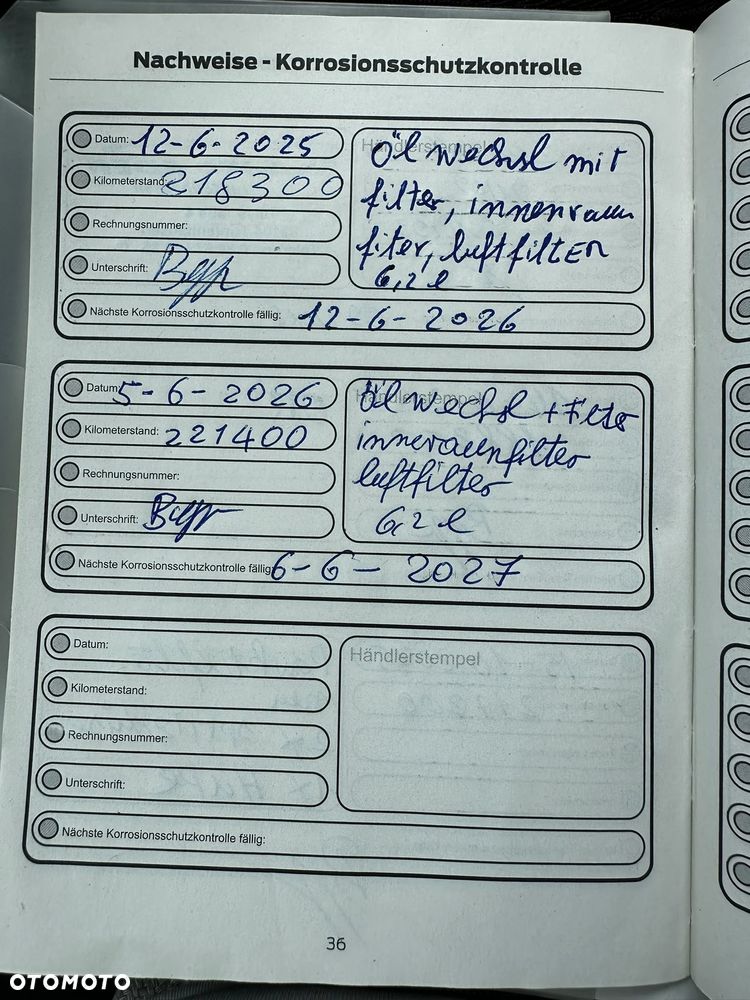 Nachweise - Korrosionsschutzkontrolle
Datum: 12-6-2025
Kilometerstand: 218300
Rechnungsnummer:
Unterschrift:
Händlerstempel
Öl wechsl mit
filter, innenraum
fiter, luftfilter
6,2 l
Nächste Korrosionsschutzkontrolle fällig: 12-6-2026
Datum: 5-6-2026
Kilometerstand: 221400
Rechnungsnummer:
Unterschrift:
Händlerstempel
Öl wechsl + Filter
inneraunfilter
luftfilter
6,2 l
Nächste Korrosionsschutzkontrolle fällig: 6-6-2027
Datum:
Kilometerstand:
Rechnungsnummer:
Unterschrift:
Händlerstempel
Nächste Korrosionsschutzkontrolle fällig:
36
OTOMOTO